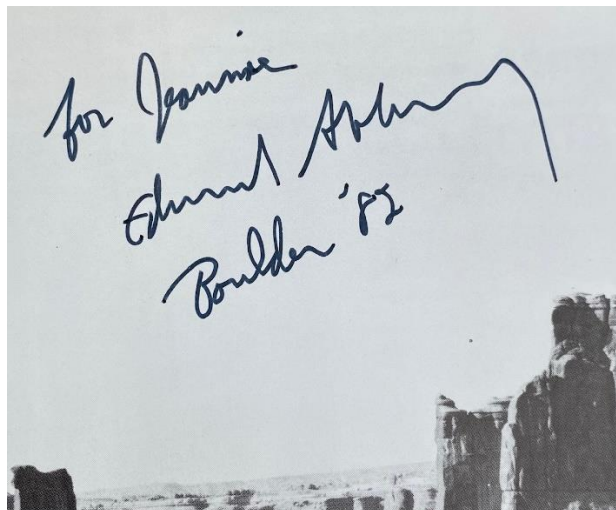 for Jeannie
Edward Abbey
Boulder '82